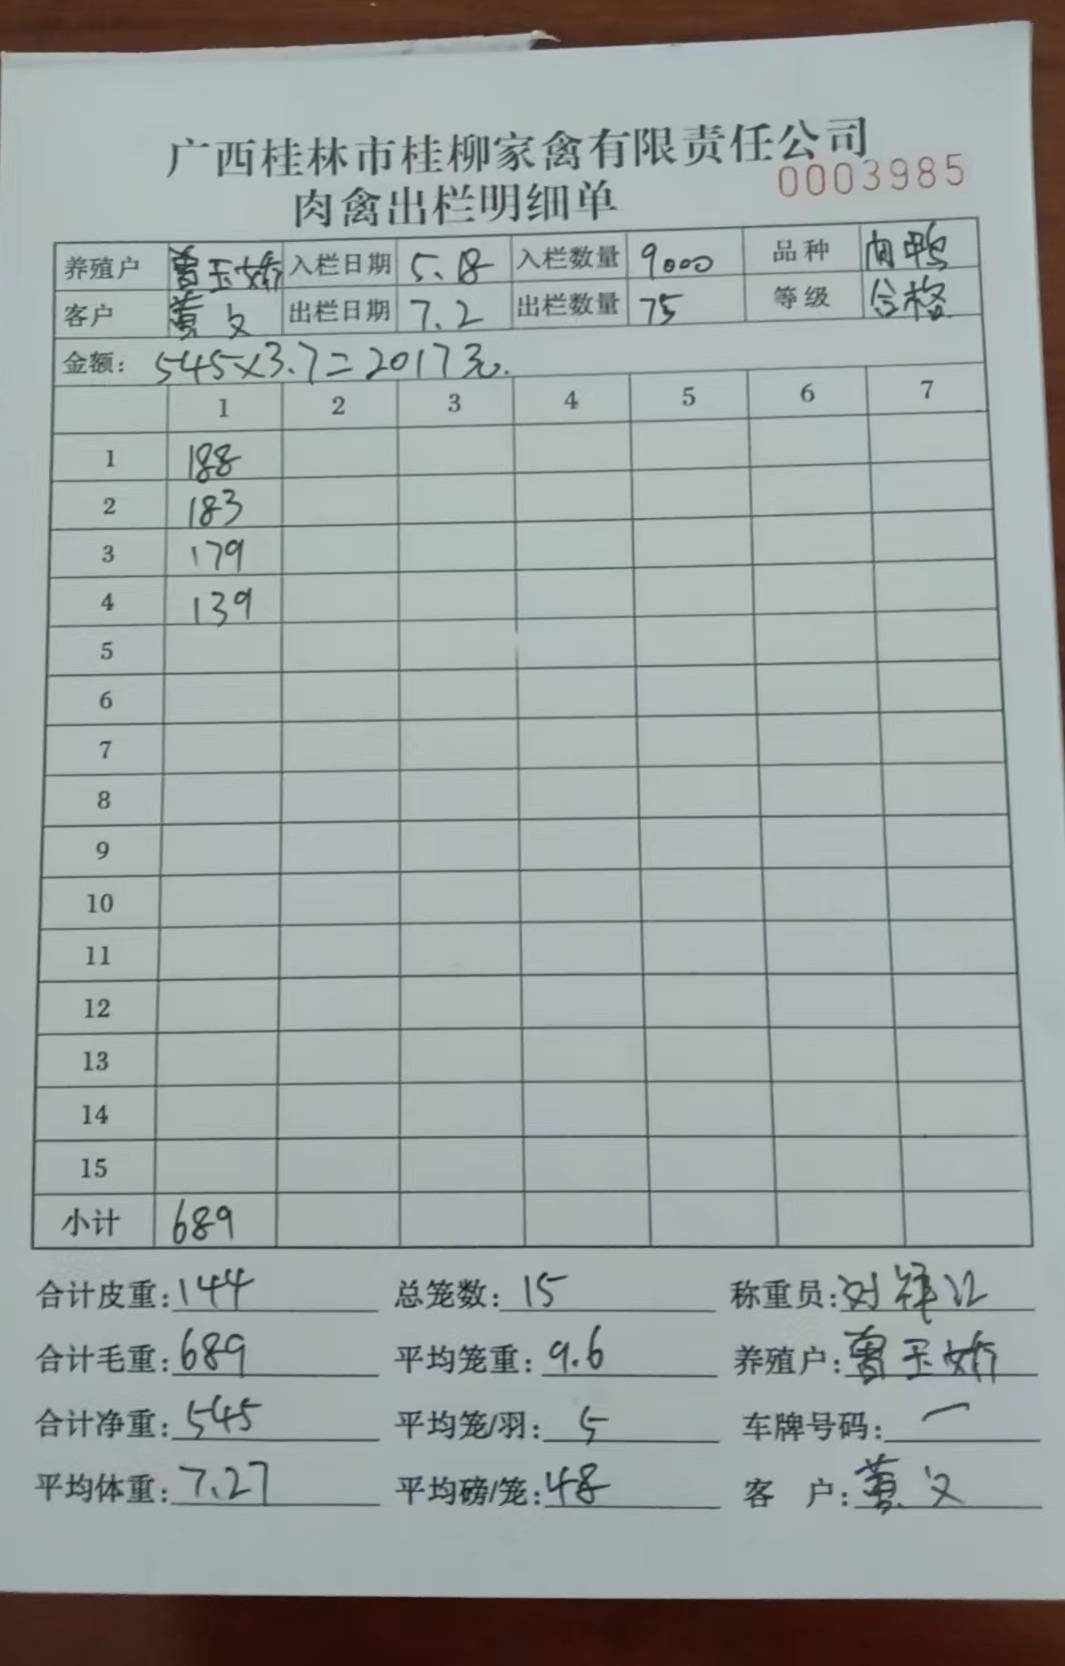 广西桂林市桂柳家禽有限责任公司
0003985
肉禽出栏明细单
养殖户 曹玉娇 入栏日期 5.18 入栏数量 9000 品种 肉鸭
客户 黄文 出栏日期 7.2 出栏数量 75 等级 合格
金额: 545×3.7=2017元.
1 2 3 4 5 6 7
1 188
2 183
3 179
4 139
5
6
7
8
9
10
11
12
13
14
15
小计 689
合计皮重: 144 总笼数: 15 称重员: 刘
合计毛重: 689 平均笼重: 9.6 养殖户: 曹玉娇
合计净重: 545 平均笼/羽: 5 车牌号码: 一
平均体重: 7.27 平均磅/笼: 48 客 户: 黄文